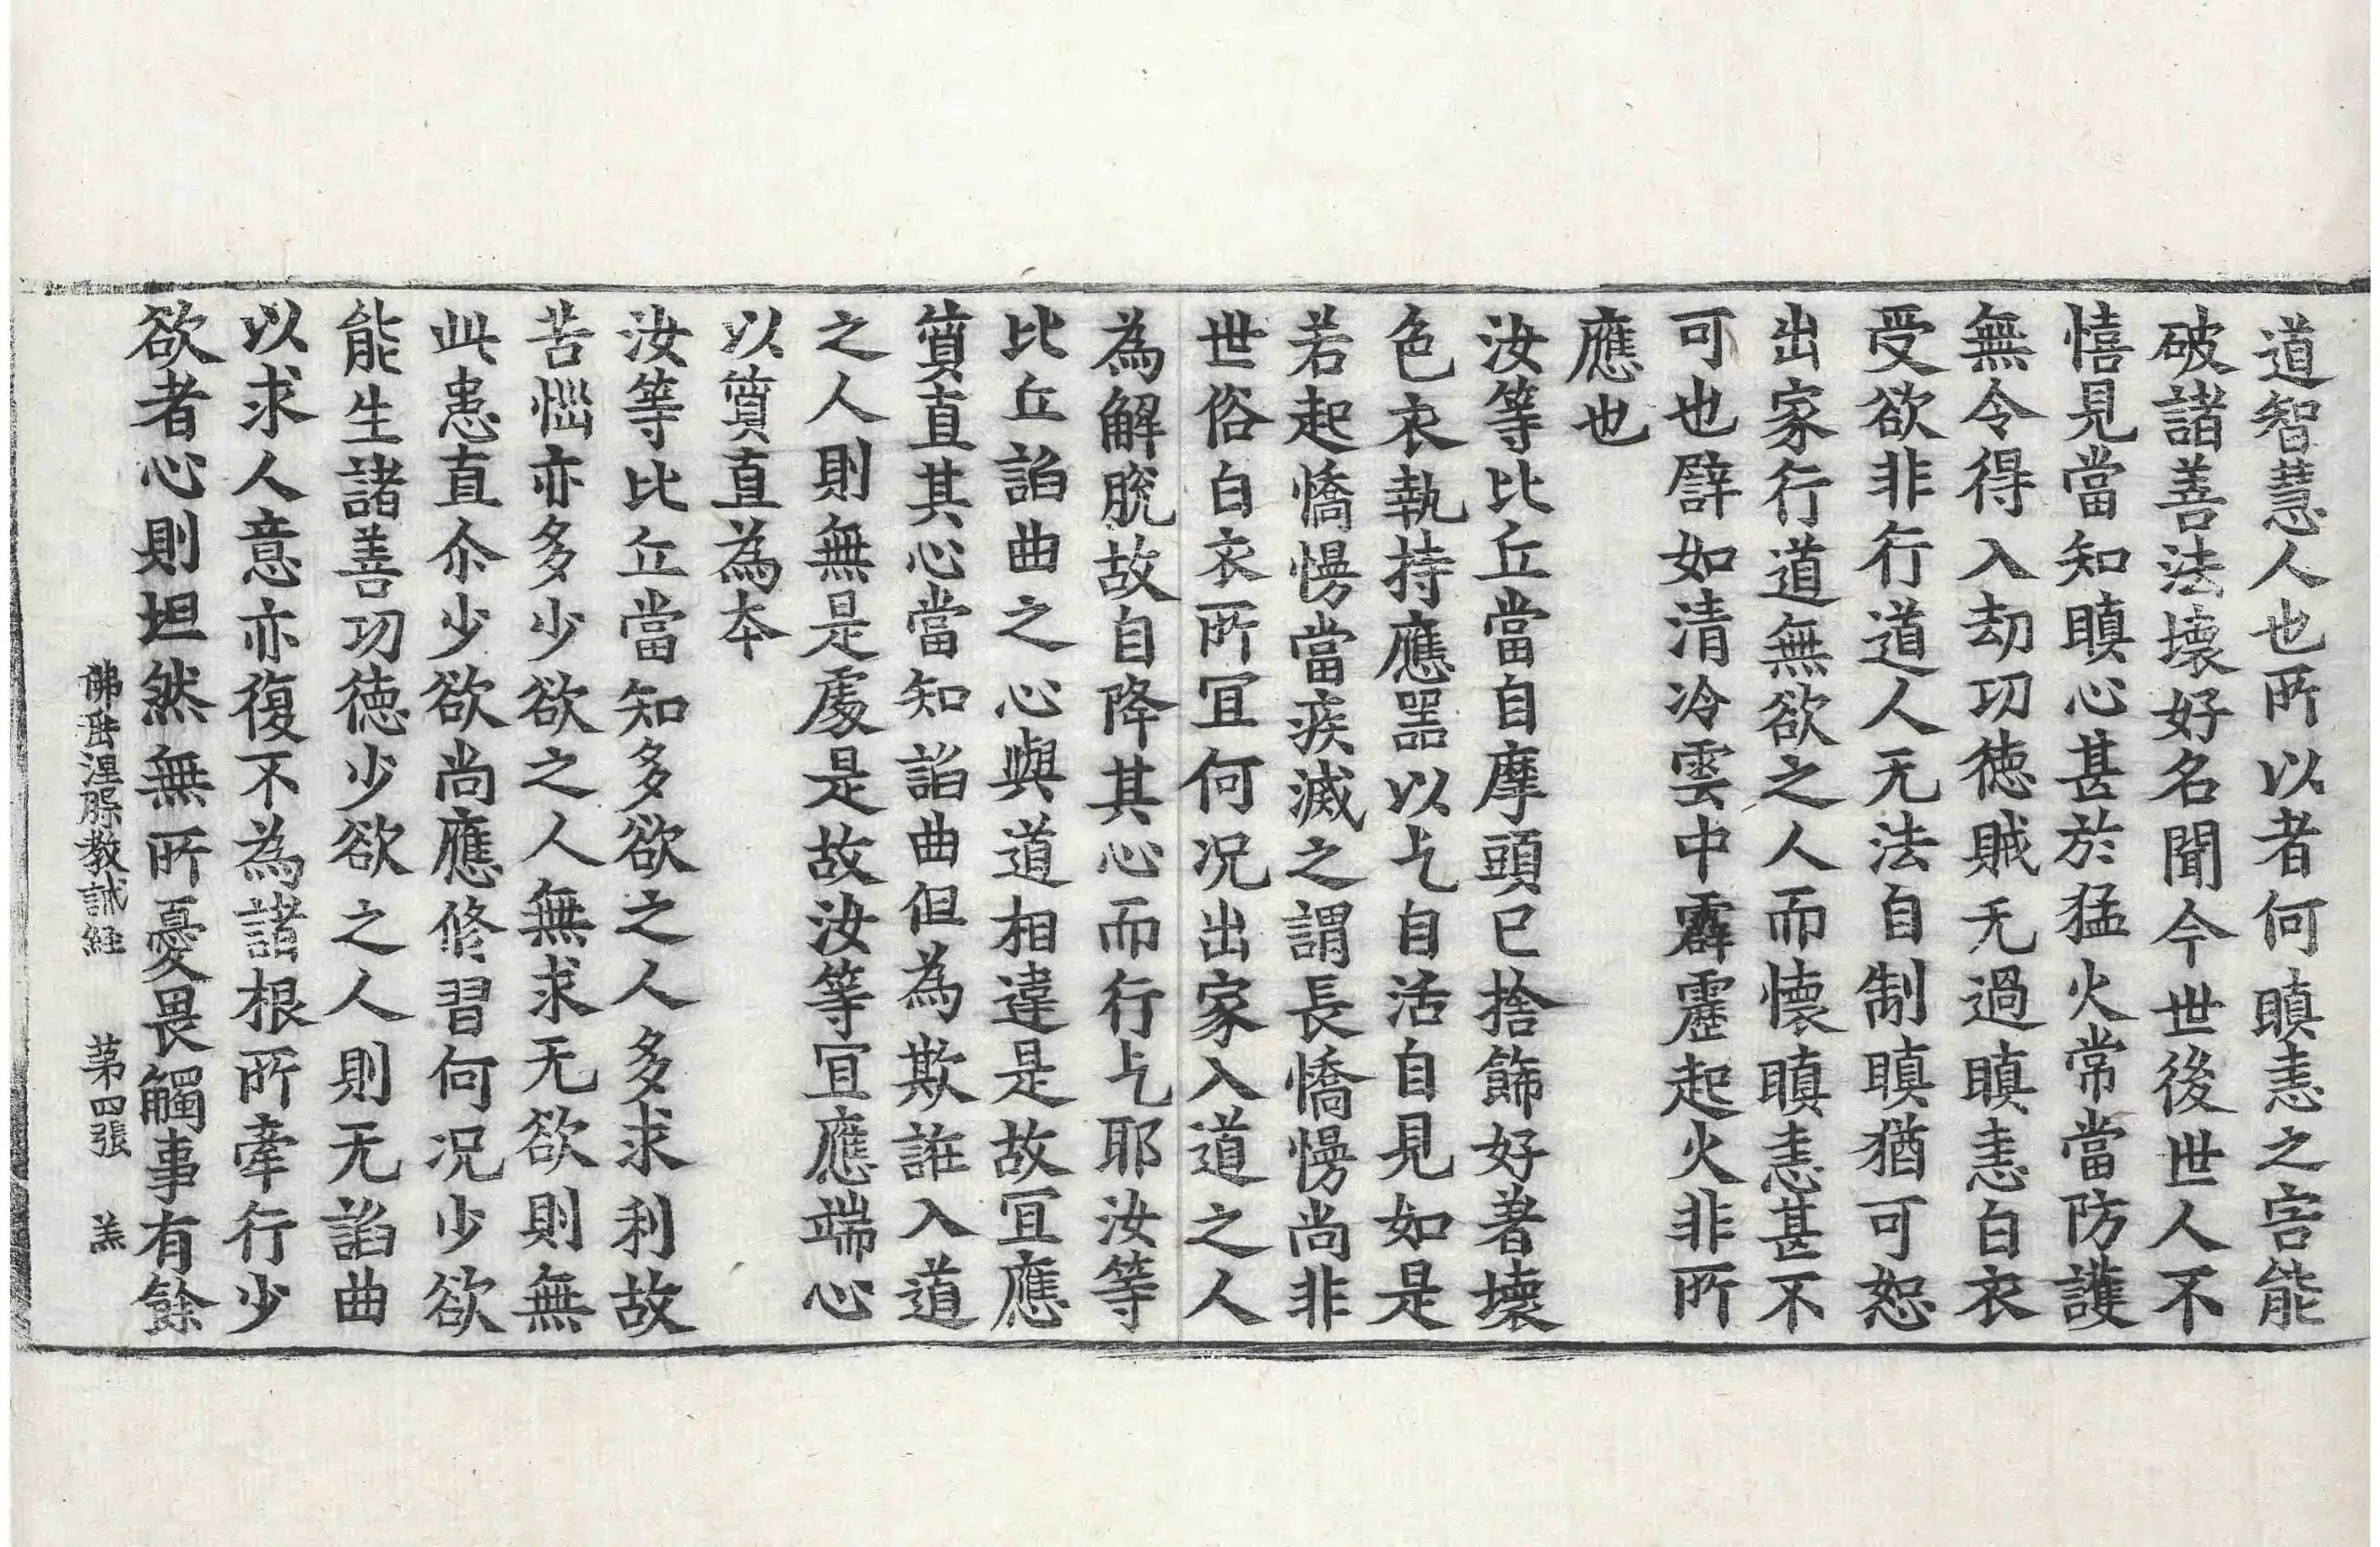 道智慧人也所以者何瞋恚之害能
破諸善法壞好名聞今世後世人不
憘見當知瞋心甚於猛火常當防護
無令得入劫功德賊无過瞋恚白衣
受欲非行道人无法自制瞋猶可恕
出家行道無欲之人而懷瞋恚甚不
可也譬如清冷雲中霹靂起火非所
應也
汝等比丘當自摩頭已捨飾好著壞
色衣執持應器以乞自活自見如是
若起憍慢當疾滅之謂長憍慢尚非
世俗白衣所宜何况出家入道之人
為解脫故自降其心而行乞耶汝等
比丘諂曲之心與道相違是故宜應
質直其心當知諂曲但為欺誑入道
之人則無是處是故汝等宜應端心
以質直為本
汝等比丘當知多欲之人多求利故
苦惱亦多少欲之人無求无欲則無
此患直尒少欲尚應修習何况少欲
能生諸善功德少欲之人則无諂曲
以求人意亦復不為諸根所牽行少
欲者心則坦然無所憂畏觸事有餘
佛垂涅槃教誡経 第四張 羔